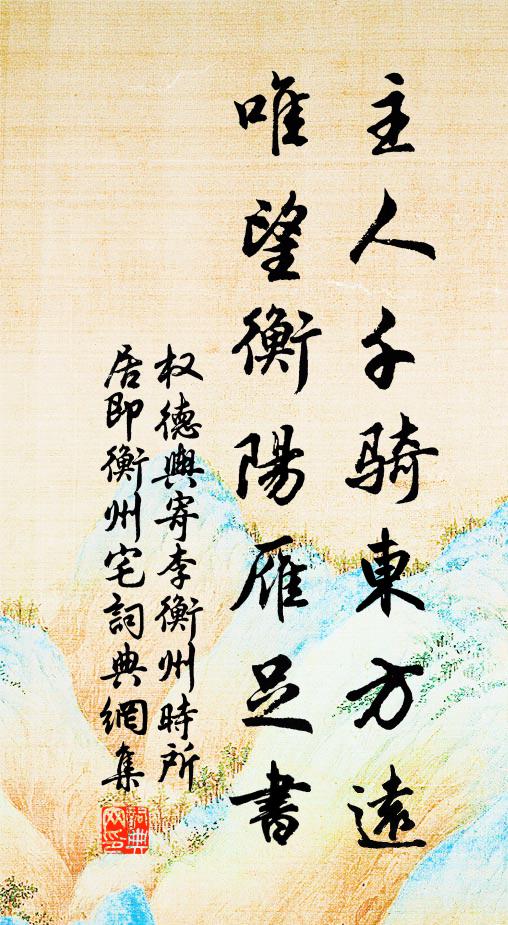 主人千骑東方遠
唯望衡陽雁足書
权德輿寄李衡州時所
居即衡州宅詞典網集
詞典网印